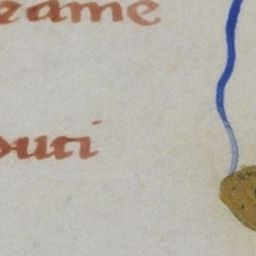 eame
duti